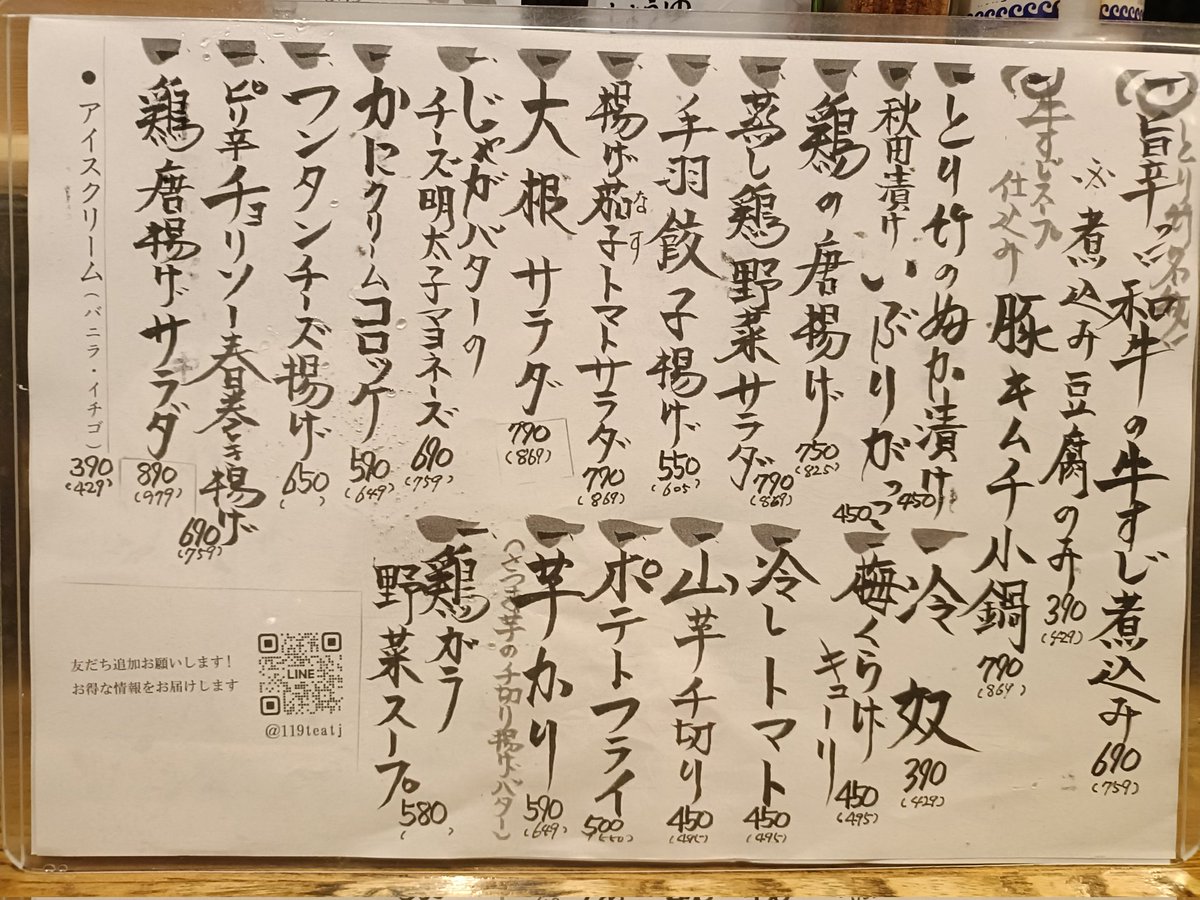 とり竹名物
旨辛っ!!和牛の牛すじ煮込み
690
(759)
※煮込み豆腐のみ
390
(429)
牛すじスープ
仕込の
豚キムチ小鍋
790
(869)
とり竹のぬか漬け
450
秋田漬け いぶりがっこ
450
鶏の唐揚げ
750
(825)
蒸し鶏野菜サラダ
790
(869)
手羽餃子揚げ
550
(605)
揚げ茄子トマトサラダ
なす
790
(869)
大根サラダ
790
(869)
じゃがバターの
チーズ明太子マヨネーズ
690
(759)
かにクリームコロッケ
590
(649)
ワンタンチーズ揚げ
650
ピリ辛チョリソー春巻き揚げ
690
(759)
鶏唐揚げサラダ
890
(979)
●アイスクリーム(バニラ・イチゴ)
390
(429)
冷奴
390
(429)
梅くらげ
キューリ
450
(495)
冷しトマト
450
(495)
山芋千切り
450
(495)
ポテトフライ
500
(550)
芋かり
(さつま芋の千切り揚げバター)
590
(649)
鶏ガラ
野菜スープ
580
友だち追加お願いします!
お得な情報をお届けします
LINE
@119teatj